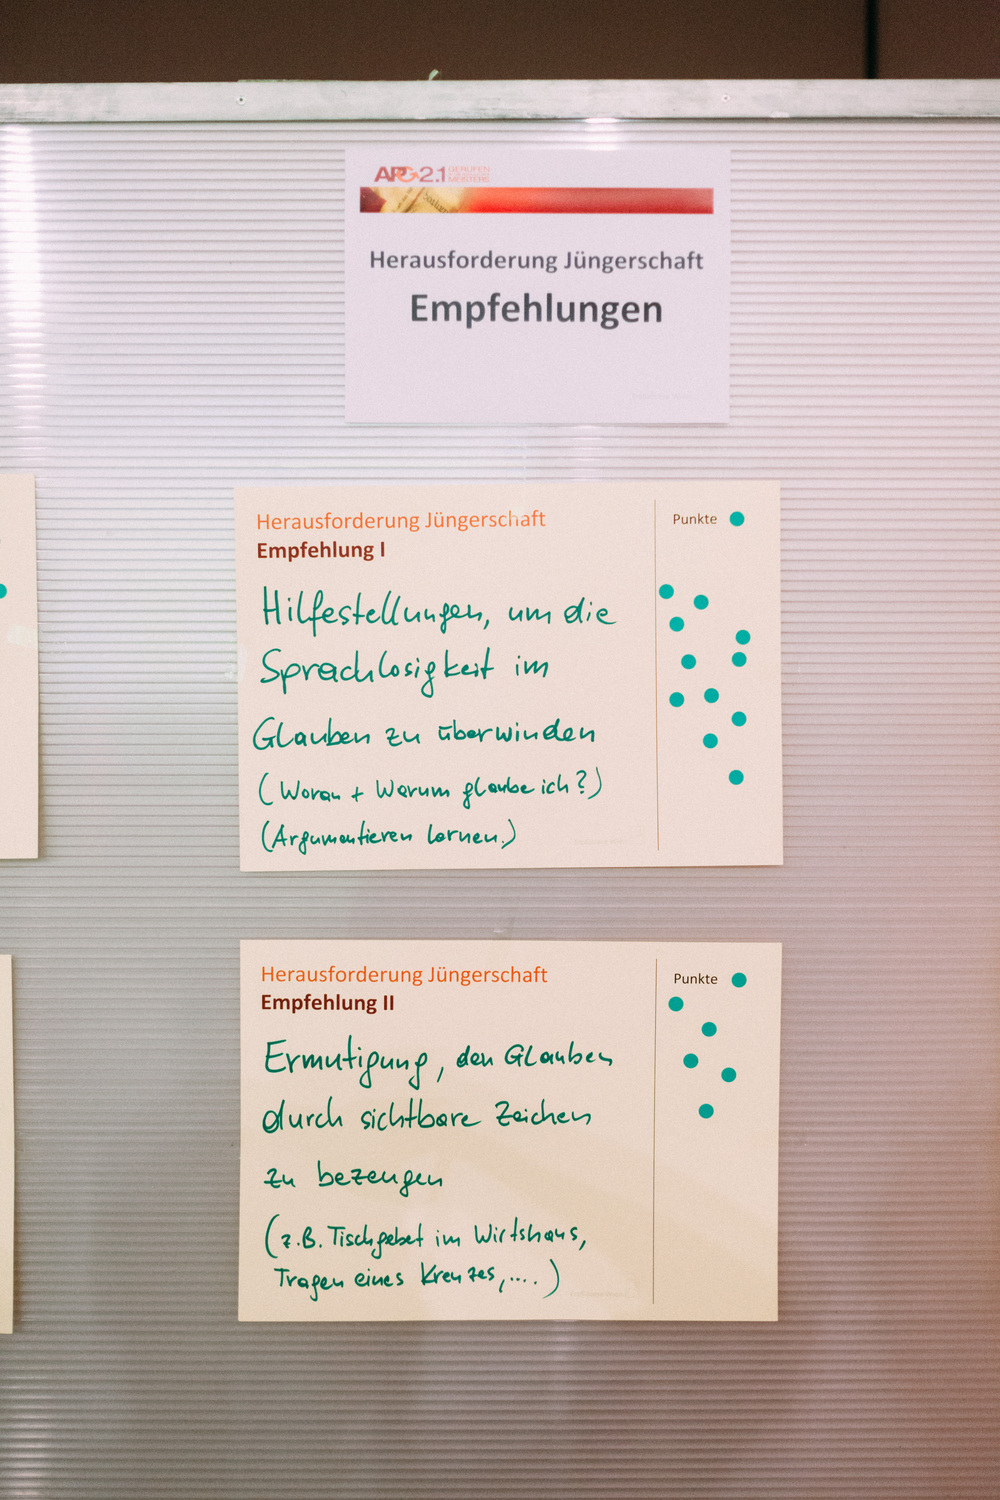 APG2.1 BERUFEN
MEISTERS
Herausforderung Jüngerschaft
Empfehlungen
Herausforderung Jüngerschaft
Empfehlung I
Punkte
Hilfestellungen, um die
Sprachlosigkeit im
Glauben zu überwinden
(Woran + Warum glaube ich?)
(Argumentieren lernen.)
Herausforderung Jüngerschaft
Empfehlung II
Punkte
Ermutigung, den Glauben
durch sichtbare Zeichen
zu bezeugen
(z.B. Tischgebet im Wirtshaus,
Tragen eines Kreuzes,....)